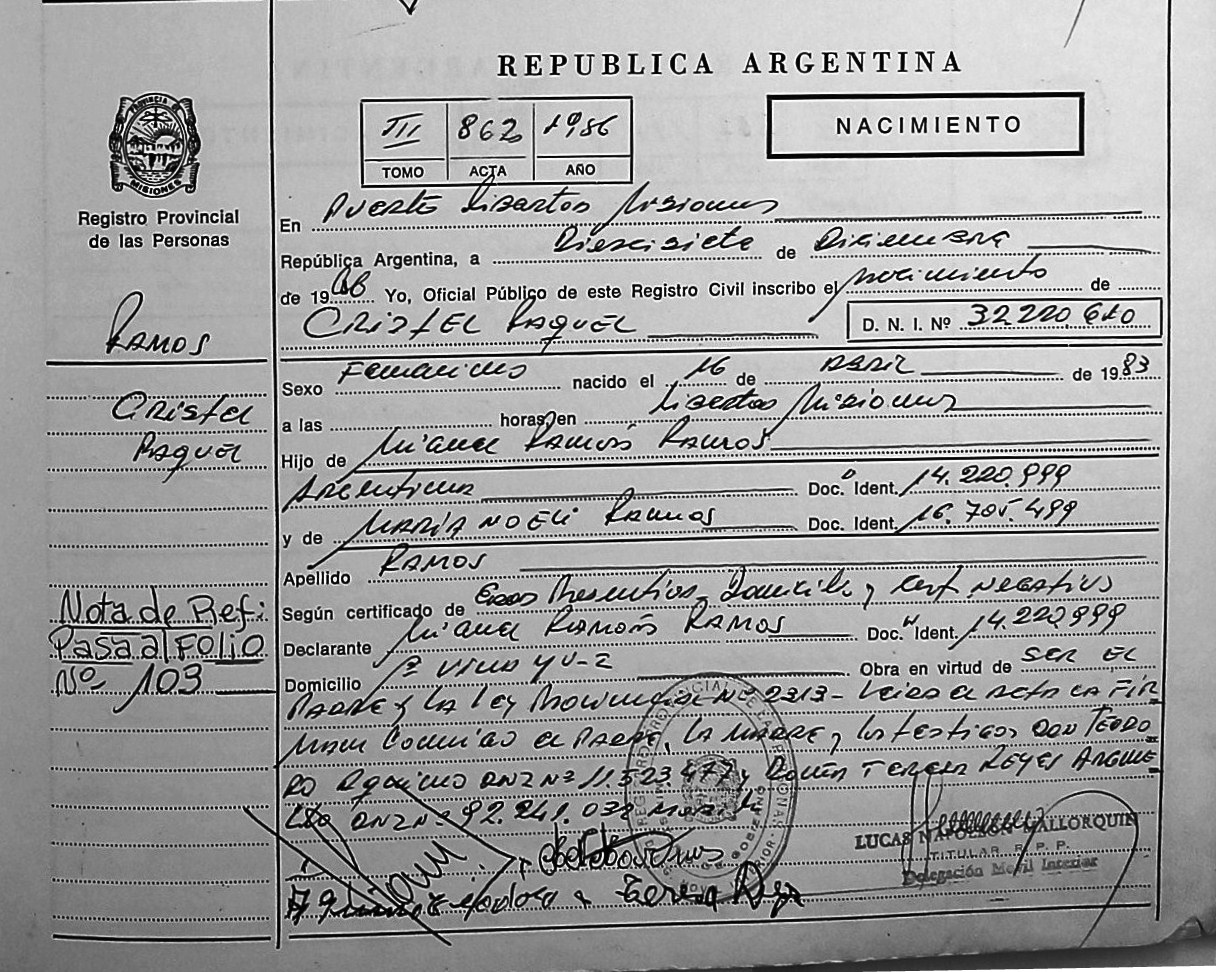 REPUBLICA ARGENTINA
PROVINCIA DE MISIONES
Registro Provincial
de las Personas
III 862 1986
TOMO ACTA AÑO
NACIMIENTO
En Puerto Libertad Misiones
República Argentina, a Diecisiete de Diciembre
de 1986 Yo, Oficial Público de este Registro Civil inscribo el nacimiento de
CRISTEL RAQUEL D. N. I. Nº 32.220.610
RAMOS
Cristel
Raquel
Sexo Femenino nacido el 16 de ABRIL de 1983
a las horas en Libertad Misiones
Hijo de Miguel Ramón Ramos
Argentina Doc. Ident. 14.220.999
y de MARIA NOELI Ramos Doc. Ident. 16.705.499
Apellido RAMOS
Según certificado de Domicilio y cert NEGATIVO
Declarante Miguel Ramón RAMOS Doc. Ident. 14.220.999
Domicilio Obra en virtud de SER EL
PADRE y LA Ley Provincial Nº 2313 - Leida el acta LA FIR
man conmigo el PADRE, LA MADRE y los testigos DON TEODO
RO DNI Nº 11.523.477 y Doña TERESA REYES
DNI Nº 92.241.032
Nota de Ref:
Pasa al FOLIO
Nº 103
LUCAS NAPOLEON MALLORQUIN
TITULAR R. P. P.
Delegación Movil Interior